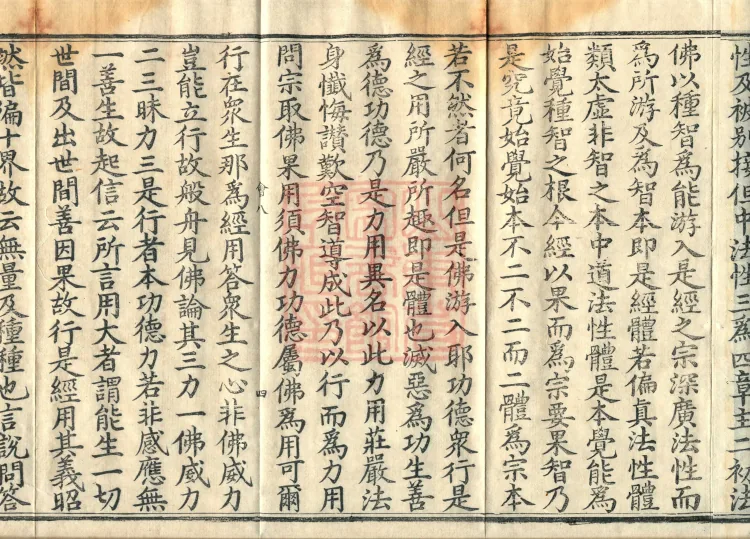 性及被別接但中法性三為四章主二初法
佛以種智為能游入是經之宗深廣法性而
為所游及為智本即是經體若偏真法性體
類太虛非智之本中道法性體是本覺能為
始覺種智之根今經以果而為宗要果智乃
是究竟始覺始本不二不二而二體為宗本
若不然者何名但是佛游入耶功德眾行是
經之用所嚴所趣即是體也滅惡為功生善
為德功德乃是力用異名以此力用莊嚴法
身懺悔讚歎空智導成此乃以行而為力用
問宗取佛果用須佛力功德屬佛為用可爾
會八
四
行在眾生那為經用答眾生之心非佛威力
豈能立行故般舟見佛論其三力一佛威力
二三昧力三是行者本功德力若非感應無
一善生故起信云所言用大者謂能生一切
世間及出世間善因果故行是經用其義昭
然皆徧十界故云無量及種種也言說問答